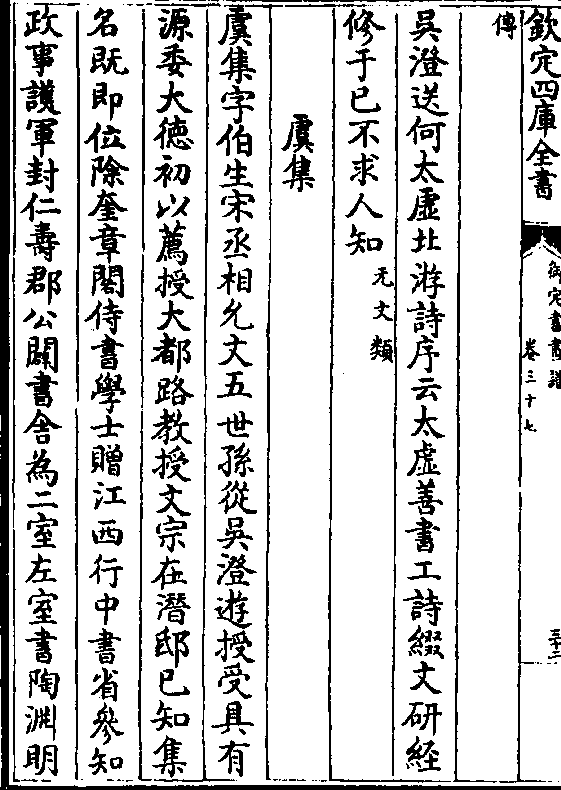 欽定四庫全書
御定書畫譜
卷三十七
三十二
傳
吳澄送何太虛北游詩序云太虛善書工詩綴文研經
修于已不求人知元文類
虞集
虞集字伯生宋丞相允文五世孫從吳澄遊授受具有
源委大德初以薦授大都路教授文宗在潛邸已知集
名既即位除奎章閣侍書學士贈江西行中書省參知
政事護軍封仁壽郡公闢書舍為二室左室書陶淵明